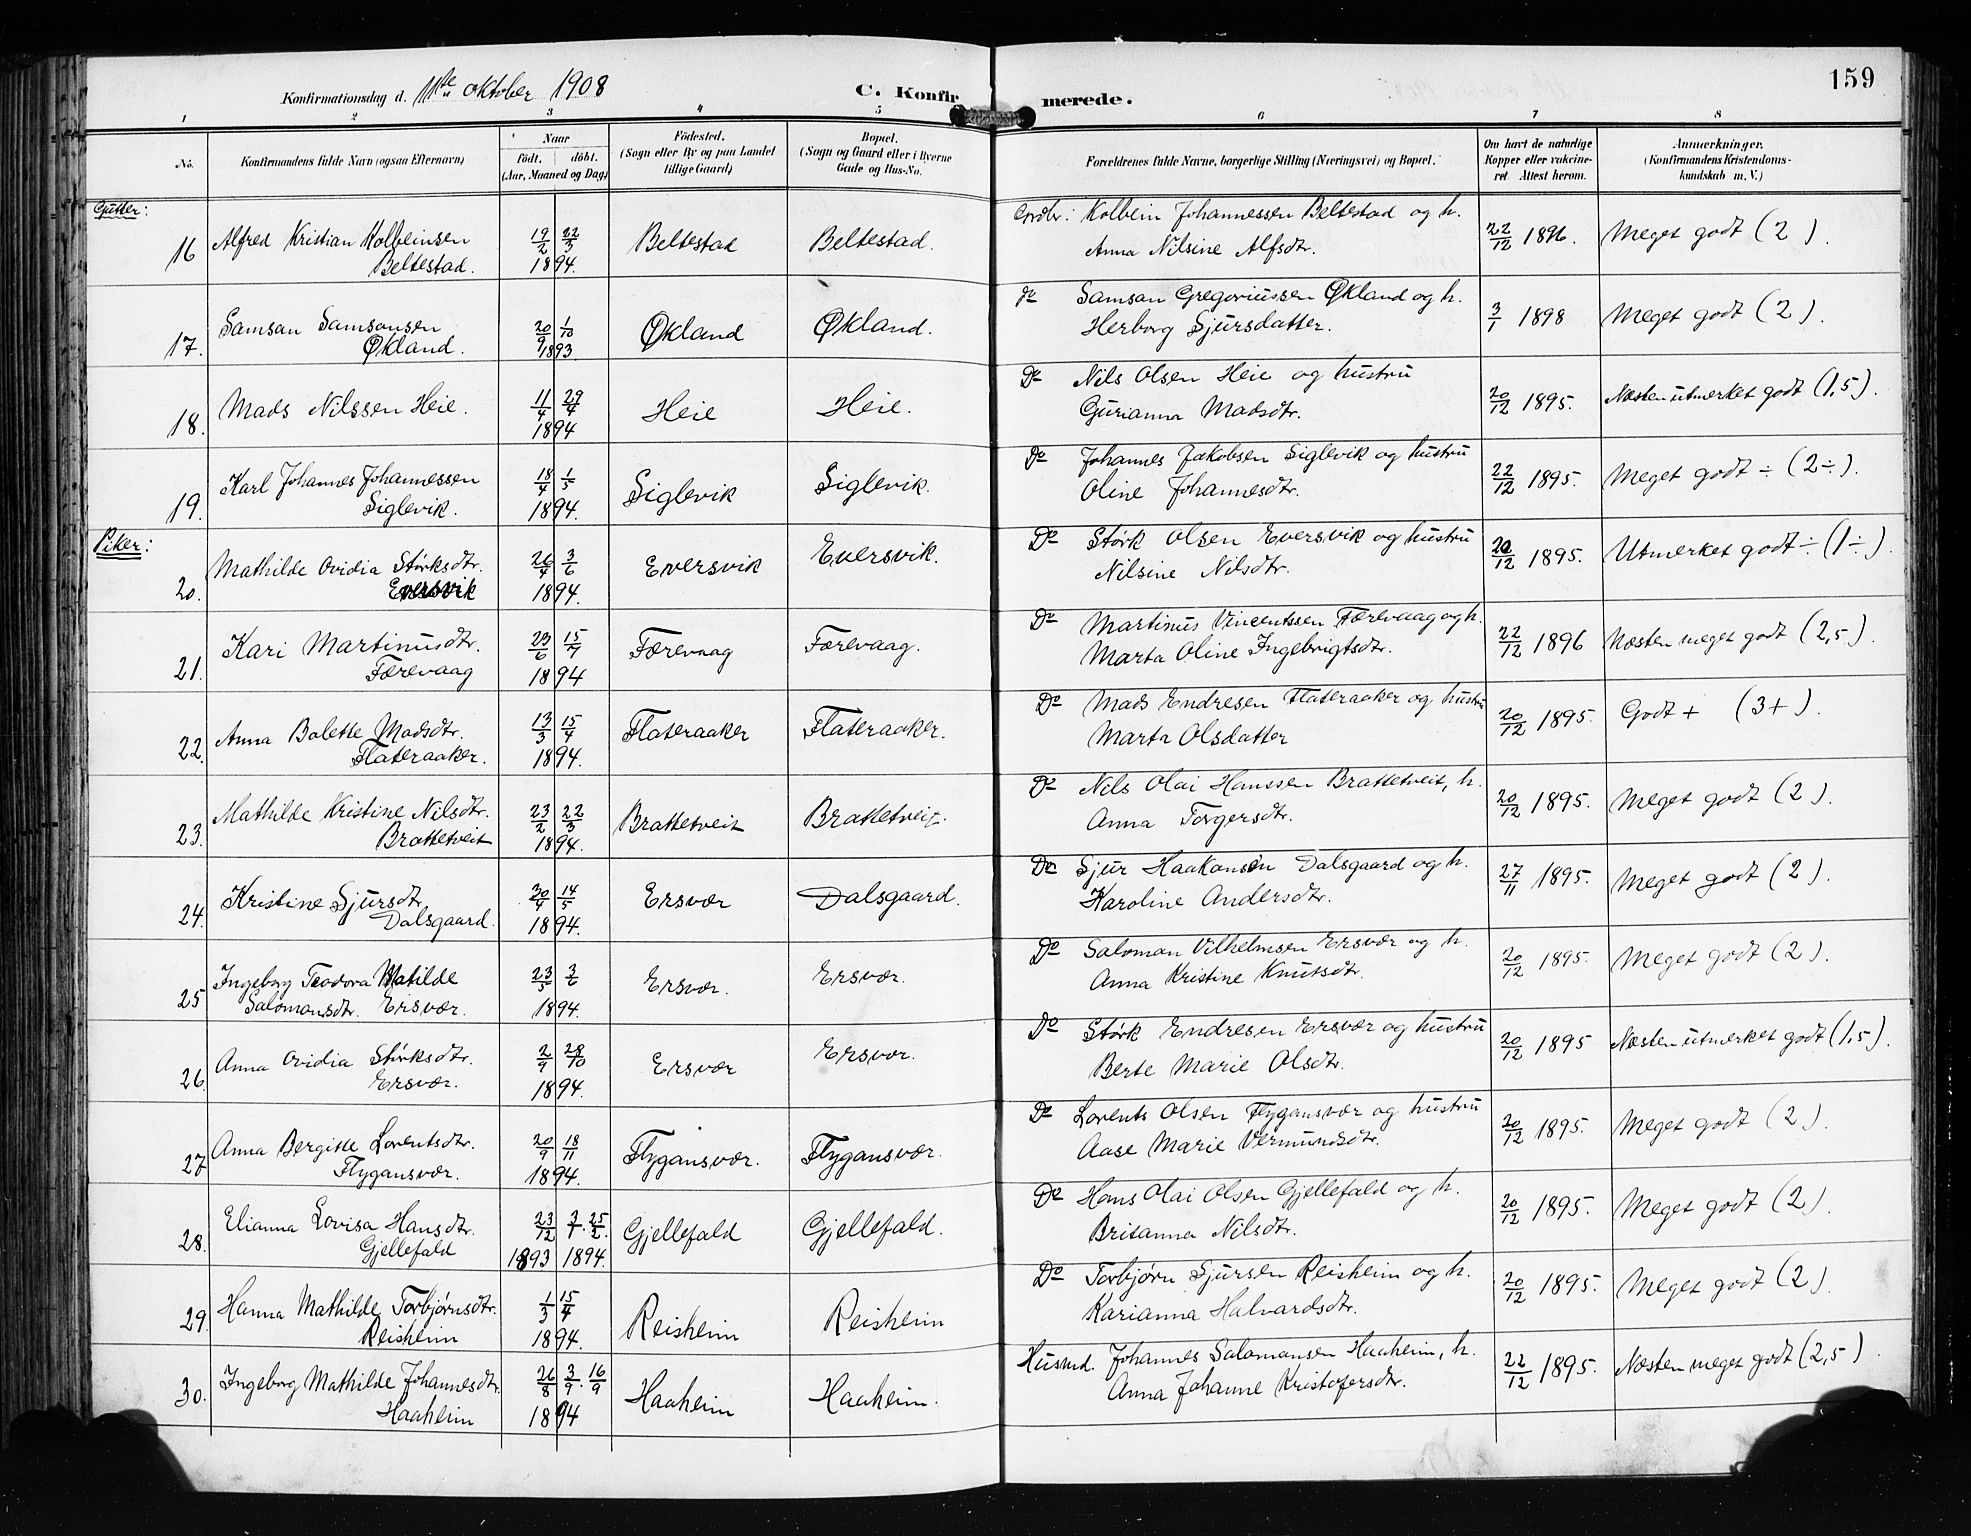 159
Konfirmationsdag d. 11te oktober 1908
C. Konfirmerede.
1 2 3 4 5 6 7 8
No.
Konfirmandens fulde Navn (ogsaa Efternavn)
Naar
født. døbt.
(Aar, Maaned og Dag)
Fødested.
(Sogn eller By og paa Landet
tillige Gaard)
Bopæl.
(Sogn og Gaard eller i Byerne
Gade og Hus-No.
Forældrenes fulde Navne, borgerlige Stilling (Næringsvei) og Bopæl.
Om havt de naturlige
Kopper eller vakcine-
ret. Attest herom.
Anmærkninger.
(Konfirmandens Kristendoms-
kundskab m. V.)
Gutter:
16 Alfred Kristian Kolbeinsen 19/2 22/3 Beltestad Beltestad. Grdbr: Kolbein Johannessen Beltestad og h. 22/12 1896. Meget godt (2).
Beltestad. 1894. Anna Nilsine Alfsdtr.
17. Samson Samsonsen 20/9 1/10 Økland Økland. do Samson Gregoriussen Økland og h. 3/1 1898 Meget godt (2).
Økland. 1893 Herborg Sjursdatter.
18. Mads Nilssen Heie. 11/4 29/4 Heie Heie. Do Nils Olsen Heie og hustru 20/12 1895. Næsten utmerket godt (1,5).
1894 Gurianna Madsdtr.
19. Karl Johannes Johannessen 18/4 1/5 Siglevik Siglevik. Do Johannes Jakobsen Siglevik og hustru 22/12 1895. Meget godt ÷ (2÷).
Siglevik. 1894. Oline Johannesdtr.
Piker:
20. Mathilde Ovidia Størksdtr. 26/4 3/6 Eversvik Eversvik. Do Størk Olsen Eversvik og hustru 20/12 1895. Utmerket godt ÷ (1÷).
Eversvik 1894. Nilsine Nilsdtr.
21. Kari Martinusdtr. 23/6 15/7 Færevaag Færevaag. Do Martinus Vincentssen Færevaag og h. 22/12 1896 Næsten meget godt (2,5).
Færevaag 1894 Marta Oline Ingebrigtsdtr.
22. Anna Bolette Madsdtr. 13/3 15/4 Flateraaker Flateraaker. Do Mads Endresen Flateraaker og hustru 20/12 1895. Godt + (3+).
Flateraaker. 1894. Marta Olsdatter
23. Mathilde Kristine Nilsdtr. 23/2 22/3 Brattetveit Brattetveit. Do Nils Olai Hanssen Brattetveit, h. 20/12 1895. Meget godt (2).
Brattetveit 1894. Anna Torgersdtr.
24. Kristine Sjursdtr. 30/4 14/5 Ersvær Dalsgaard. Do Sjur Haakonsen Dalsgaard og h. 27/11 1895. Meget godt (2).
Dalsgaard. 1894. Karoline Andersdtr.
25 Ingeborg Teodora Matilde 23/5 3/6 Ersvær. Ersvær. Do Saloman Vilhelmsen Ersvær og h. 20/12 1895. Meget godt (2).
Salomonsdtr. Ersvær. 1894. Anna Kristine Knutsdtr.
26. Anna Ovidia Størksdtr. 2/9 28/10 Ersvær Ersvær. Do Størk Endresen Ersvær og hustru 20/12 1895 Næsten utmerket godt (1,5).
Ersvær. 1894. Berte Marie Olsdtr.
27 Anna Bergitte Lorentsdtr. 20/9 18/11 Flygansvær. Flygansvær. Do Lorents Olsen Flygansvær og hustru 20/12 1895. Meget godt (2).
Flygansvær. 1894. Aase Marie Vermundsdtr.
28. Elianna Lovisa Hansdtr. 23/12 7/1. 25/2. Gjellefald Gjellefald. Do Hans Olai Olsen Gjellefald og h. 20/12 1895. Meget godt (2).
Gjellefald 1893 1894. Britanna Nilsdtr.
29. Hanna Mathilde Torbjørnsdtr. 1/3 15/4 Reisheim Reisheim Do Torbjørn Sjursen Reisheim og h. 20/12 1895. Meget godt (2).
Reisheim 1894. Karianna Halvardsdtr.
30. Ingeborg Mathilde Johannesdtr. 26/8 3/9. 16/9 Haaheim Haaheim. Husmd. Johannes Salomonsen Haaheim, h. 22/12 1895. Næsten meget godt (2,5).
Haaheim 1894 Anna Johanne Kristofersdtr.